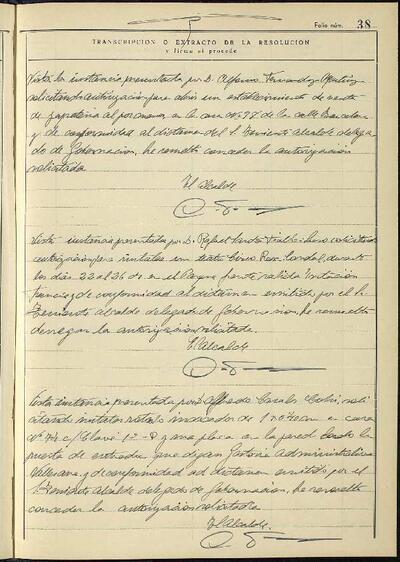 Folio núm. 38
TRANSCRIPCION O EXTRACTO DE LA RESOLUCION
y firma si procede
Vista la instancia presentada por D. Alfonso Fernandez
solicitando autorización para abrir un establecimiento de venta
de zapatería al por menor en la casa nº 98 de la calle Barcelona
y de conformidad al dictamen del S. Teniente Alcalde delega
do de Gobernacion, he resuelto conceder la autorización
solicitada
El Alcalde
Vista instancia presentada por D. Rafael solicitando
autorización para instalar un teatro Circo durante
los dias 22 al 26 de en el frente salida Estación
y de conformidad al dictamen emitido por el S.
Teniente Alcalde delegado de Gobernacion, he resuelto
denegar la autorización solicitada.
El Alcalde
Vista instancia presentada por D. Alfredo Casals soli
citando instalar rótulo indicador de en casa
Nº 74 c/ Clavé 1º - y una placa en la pared
puerta de entrada, que digan Gestoria Administrativa
Vallesana, y de conformidad al dictamen emitido por el
S. Teniente Alcalde delegado de Gobernacion, he resuelto
conceder la autorización solicitada
El Alcalde.